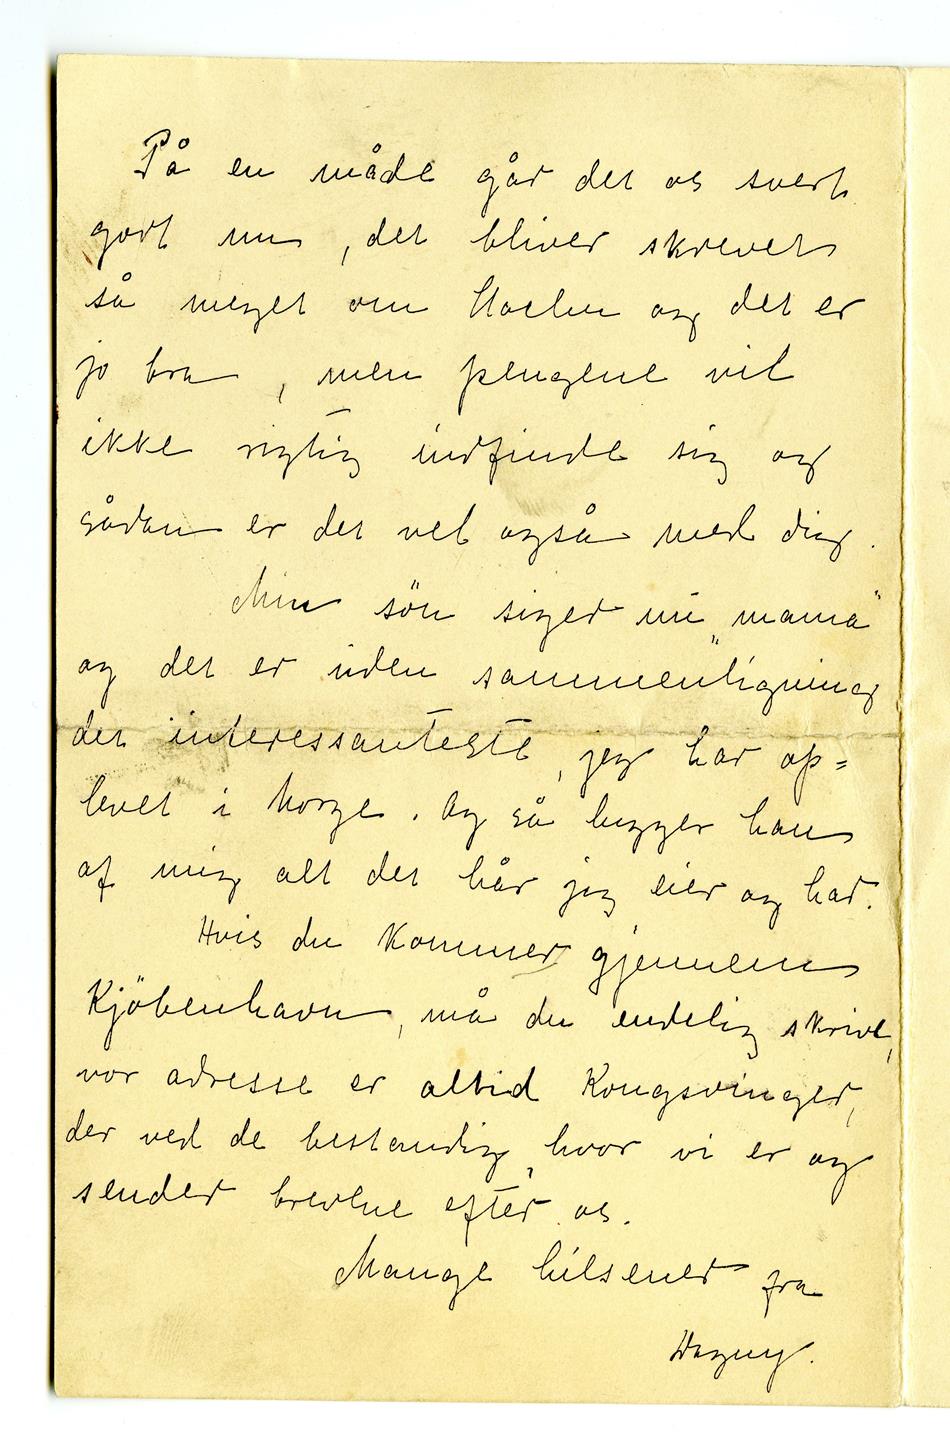 På en måde går det os svert
godt nu, det bliver skrevet
så meget om Stachu og det er
jo bra, men pengene vil
ikke rigtig indfinde sig og
sådan er det vel også med dig.
Min sön siger nu „mama"
og det er uden sammenligning
det interessanteste, jeg har op=
levet i Norge. Og så lugger han
af mig alt det hår jeg eier og har.
Hvis du kommer gjennem
Kjöbenhavn, må du endelig skrive,
vor adresse er altid Kongsvinger,
der ved de bestandig, hvor vi er og
sender brevene efter os.
Mange hilsener fra
Dagny.